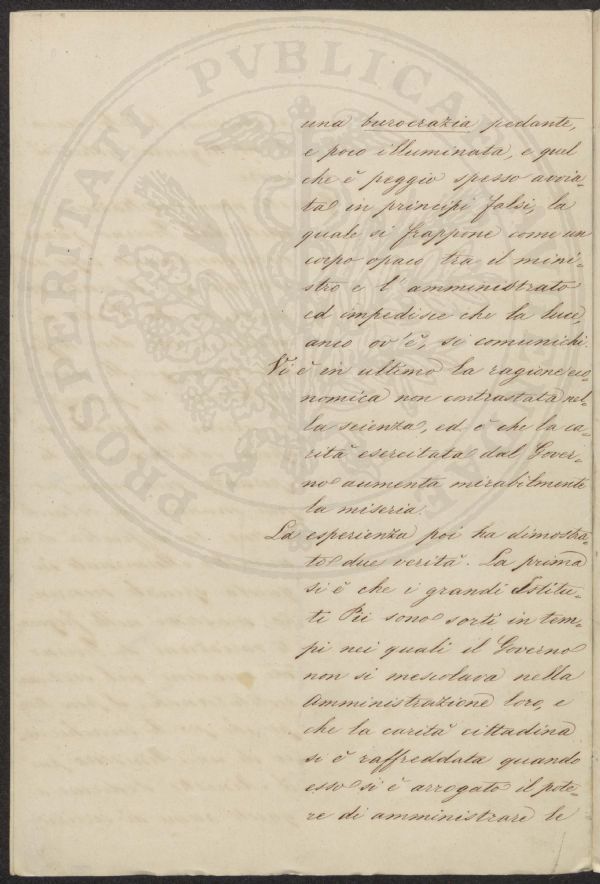 una burocrazia pedante,
e poco illuminata, e quel
che è peggio spesso avvia-
ta in principi falsi, la
quale si frappone come un
corpo opaco tra il mini-
stro e l'amministrato
ed impedisce che la luce,
anco ov'è, si comunichi.
Vi è in ultimo la ragione eco-
nomica non contrastata nel-
la scienza, ed è che la ca-
rità esercitata dal Gover-
no aumenta mirabilmente
la miseria.
La esperienza poi ha dimostra-
to due verità. La prima
si è che i grandi Istitu-
ti Pii sono sorti in tem-
pi nei quali il Governo
non si mescolava nella
Amministrazione loro, e
che la carità cittadina
si è raffreddata quando
esso si è arrogato il pote-
re di amministrare le
PROSPERITATI PVBLICA